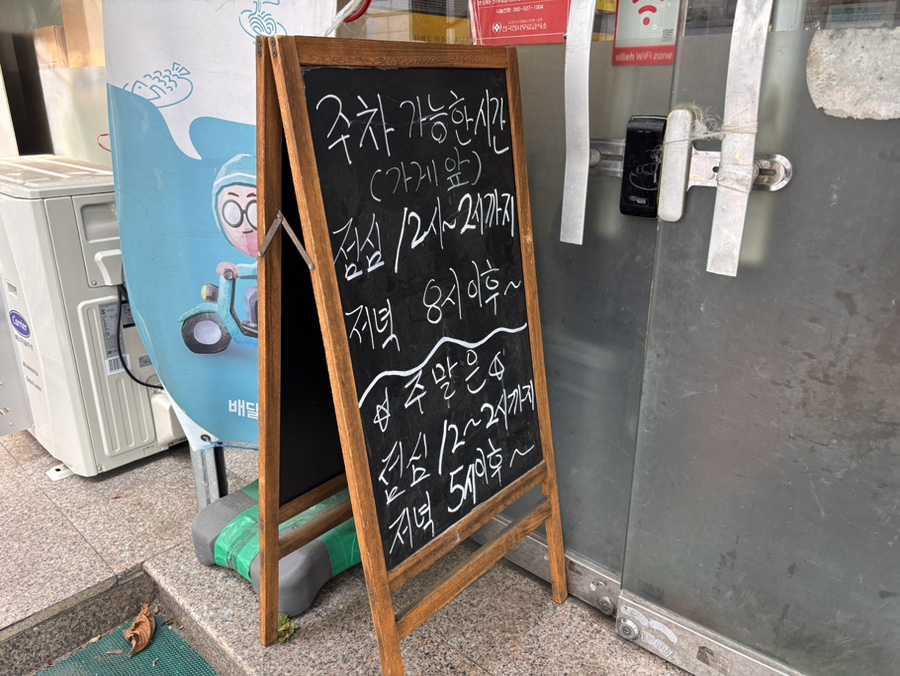 주차 가능한시간
(가게 앞)
점심 12시~2시까지
저녁 8시이후~
주말은
점심 12~2시까지
저녁 5시이후~
배달
Carrier
olleh WiFi zone